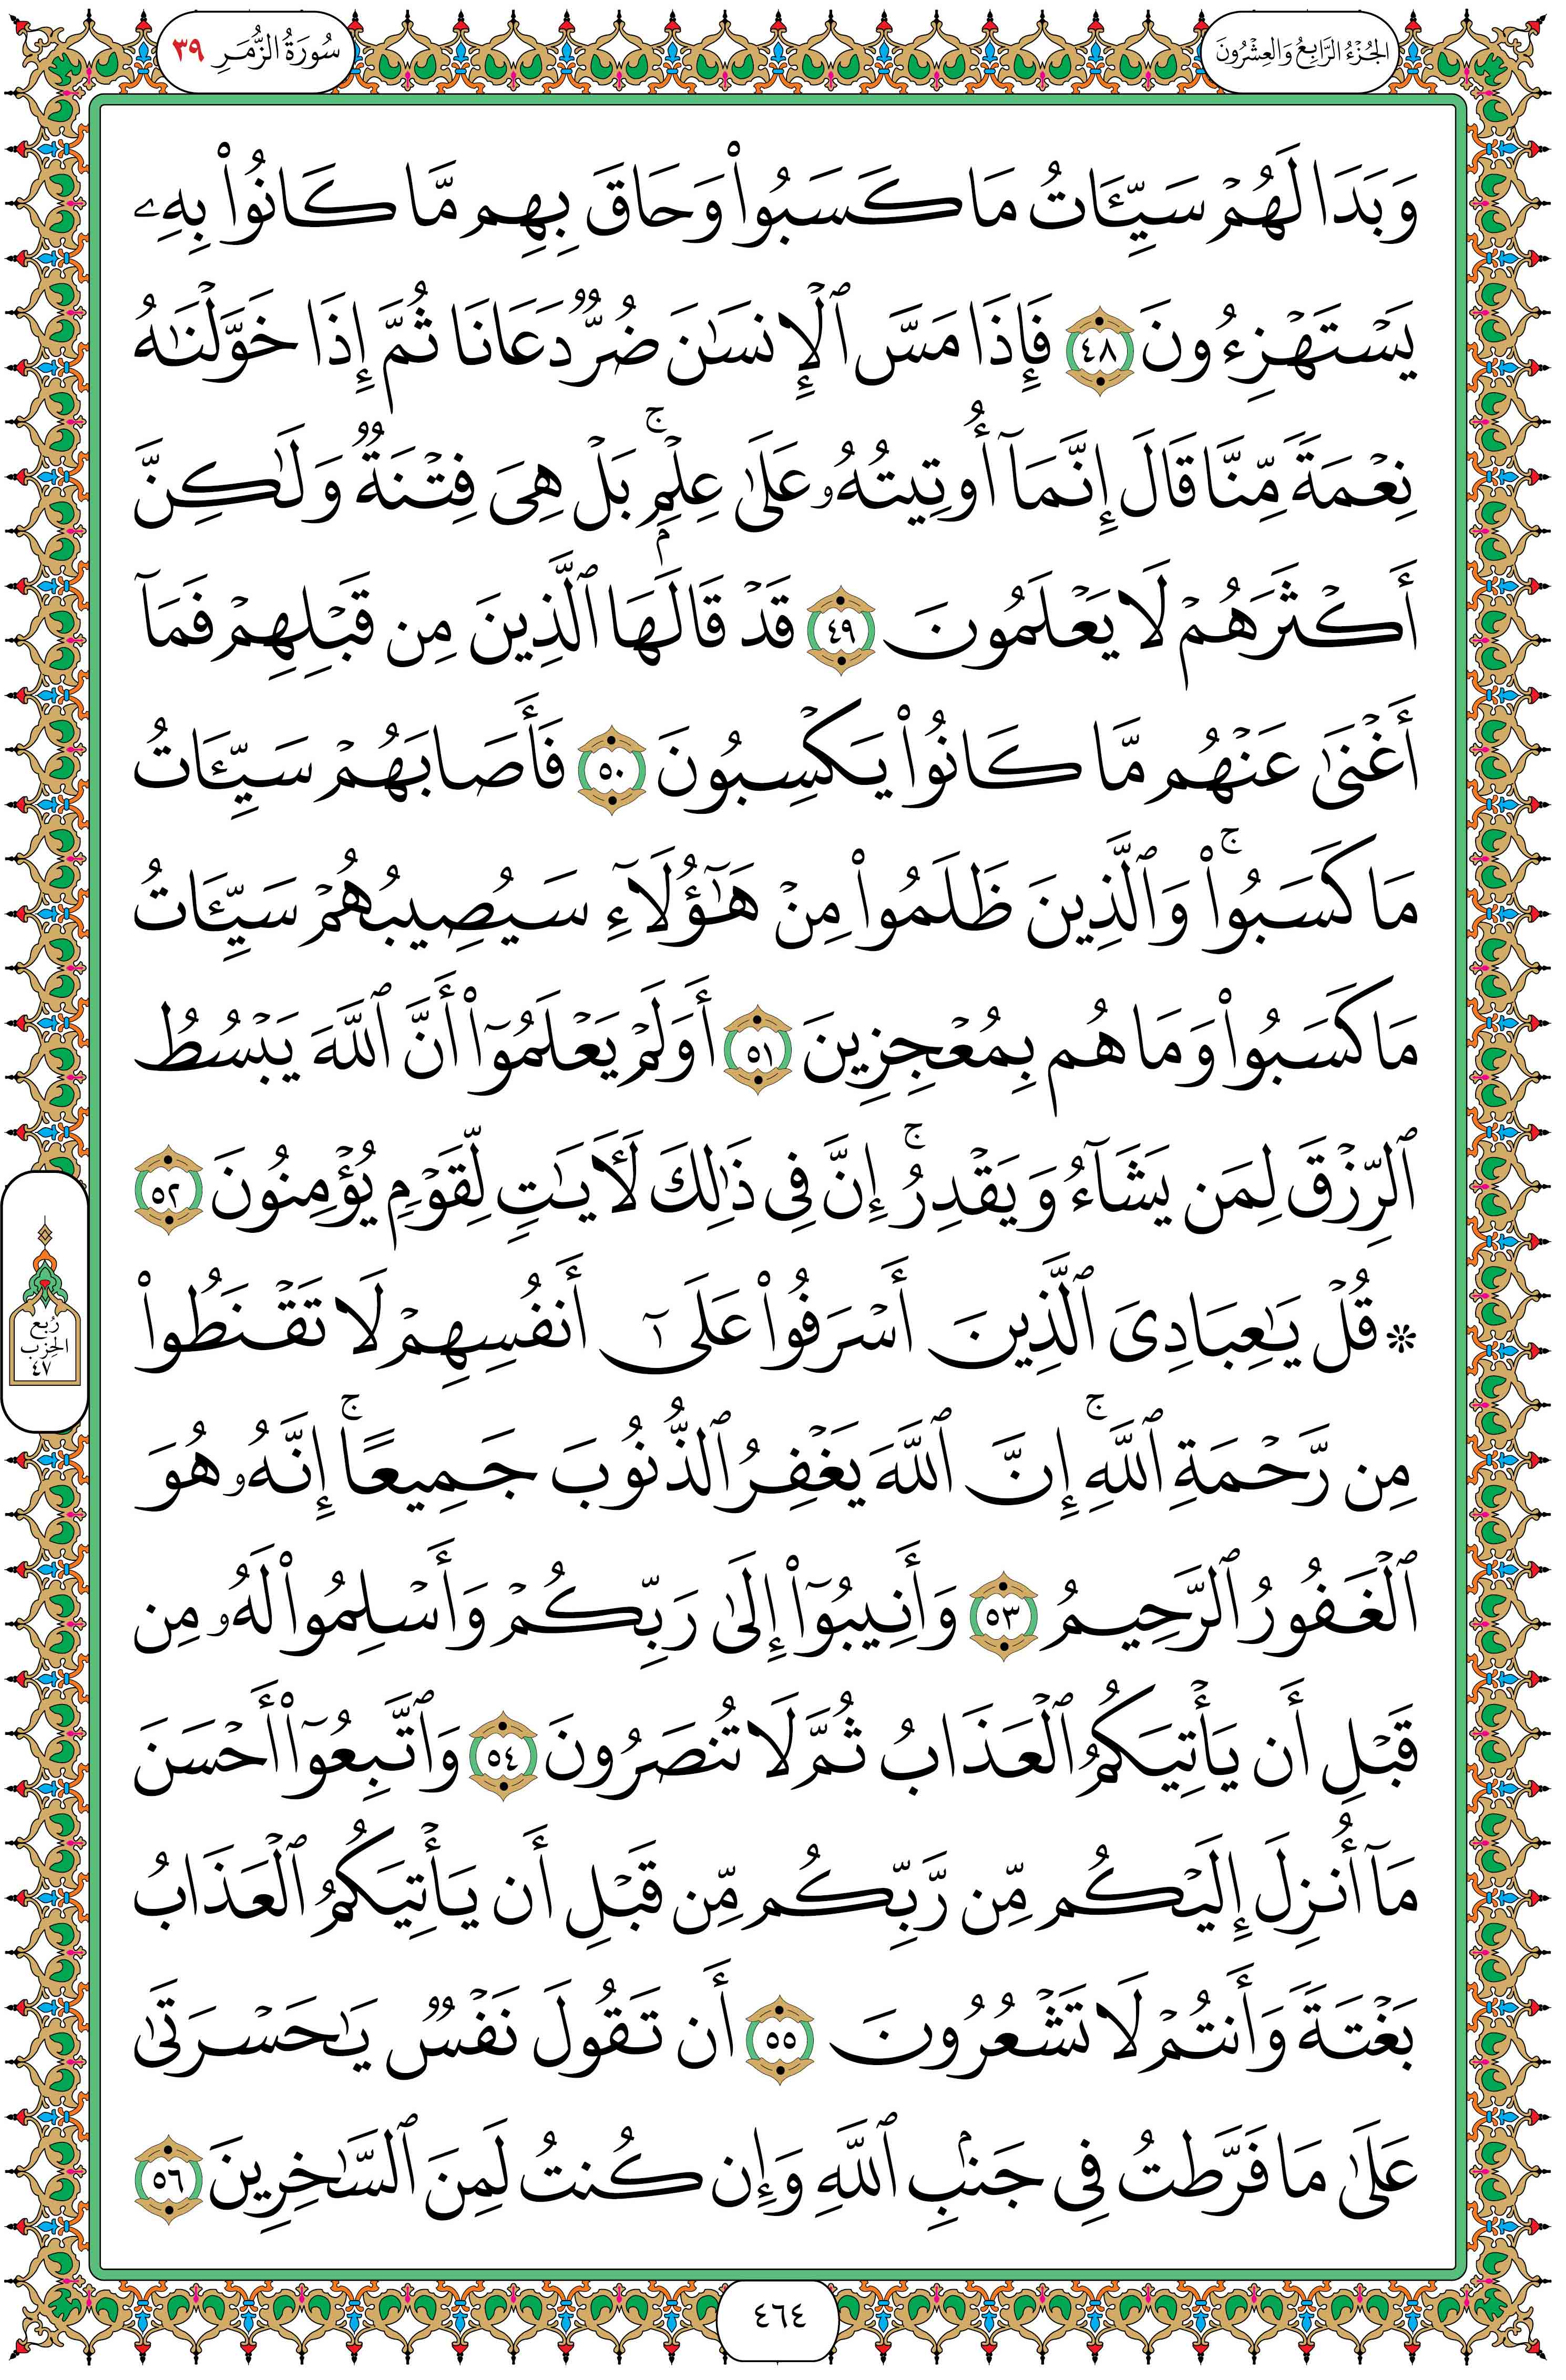 الجُزْءُ الرَّابِعُ وَالعِشْرُونَ
سُورَةُ الزُّمَرِ ٣٩
وَبَدَا لَهُمْ سَيِّـَٔاتُ مَا كَسَبُوا۟ وَحَاقَ بِهِم مَّا كَانُوا۟ بِهِۦ
يَسْتَهْزِءُونَ ٤٨ فَإِذَا مَسَّ ٱلْإِنسَٰنَ ضُرٌّ دَعَانَا ثُمَّ إِذَا خَوَّلْنَٰهُ
نِعْمَةً مِّنَّا قَالَ إِنَّمَآ أُوتِيتُهُۥ عَلَىٰ عِلْمٍۭ ۚ بَلْ هِىَ فِتْنَةٌ وَلَٰكِنَّ
أَكْثَرَهُمْ لَا يَعْلَمُونَ ٤٩ قَدْ قَالَهَا ٱلَّذِينَ مِن قَبْلِهِمْ فَمَآ
أَغْنَىٰ عَنْهُم مَّا كَانُوا۟ يَكْسِبُونَ ٥٠ فَأَصَابَهُمْ سَيِّـَٔاتُ
مَا كَسَبُوا۟ ۚ وَٱلَّذِينَ ظَلَمُوا۟ مِنْ هَٰٓؤُلَآءِ سَيُصِيبُهُمْ سَيِّـَٔاتُ
مَا كَسَبُوا۟ وَمَا هُم بِمُعْجِزِينَ ٥١ أَوَلَمْ يَعْلَمُوٓا۟ أَنَّ ٱللَّهَ يَبْسُطُ
ٱلرِّزْقَ لِمَن يَشَآءُ وَيَقْدِرُ ۚ إِنَّ فِى ذَٰلِكَ لَـَٔايَٰتٍ لِّقَوْمٍ يُؤْمِنُونَ ٥٢
۞ قُلْ يَٰعِبَادِىَ ٱلَّذِينَ أَسْرَفُوا۟ عَلَىٰٓ أَنفُسِهِمْ لَا تَقْنَطُوا۟
مِن رَّحْمَةِ ٱللَّهِ ۚ إِنَّ ٱللَّهَ يَغْفِرُ ٱلذُّنُوبَ جَمِيعًا ۚ إِنَّهُۥ هُوَ
ٱلْغَفُورُ ٱلرَّحِيمُ ٥٣ وَأَنِيبُوٓا۟ إِلَىٰ رَبِّكُمْ وَأَسْلِمُوا۟ لَهُۥ مِن
قَبْلِ أَن يَأْتِيَكُمُ ٱلْعَذَابُ ثُمَّ لَا تُنصَرُونَ ٥٤ وَٱتَّبِعُوٓا۟ أَحْسَنَ
مَآ أُنزِلَ إِلَيْكُم مِّن رَّبِّكُم مِّن قَبْلِ أَن يَأْتِيَكُمُ ٱلْعَذَابُ
بَغْتَةً وَأَنتُمْ لَا تَشْعُرُونَ ٥٥ أَن تَقُولَ نَفْسٌ يَٰحَسْرَتَىٰ
عَلَىٰ مَا فَرَّطتُ فِى جَنۢبِ ٱللَّهِ وَإِن كُنتُ لَمِنَ ٱلسَّٰخِرِينَ ٥٦
رُبع
الحِزب
٤٧
٤٦٤